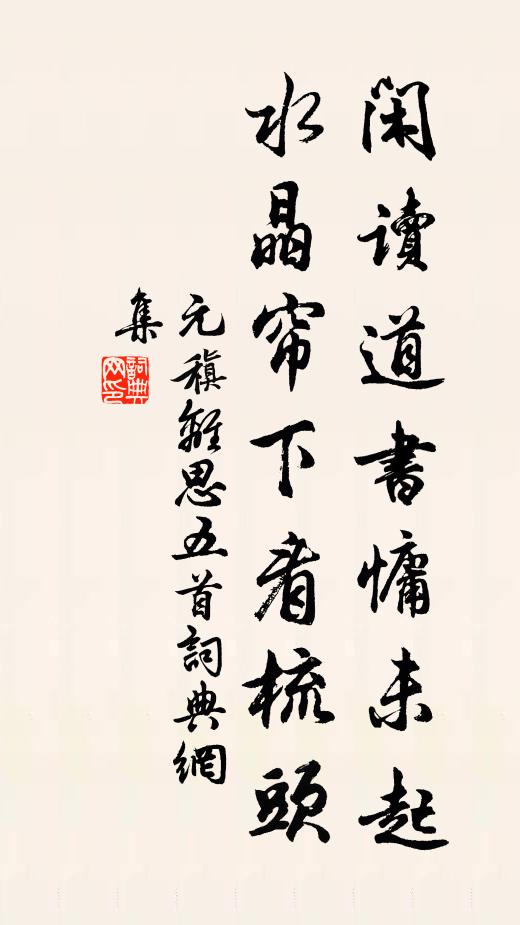 閑讀道書慵未起
水晶帘下看梳頭
元稹離思五首詞典網
集
詞典
网印